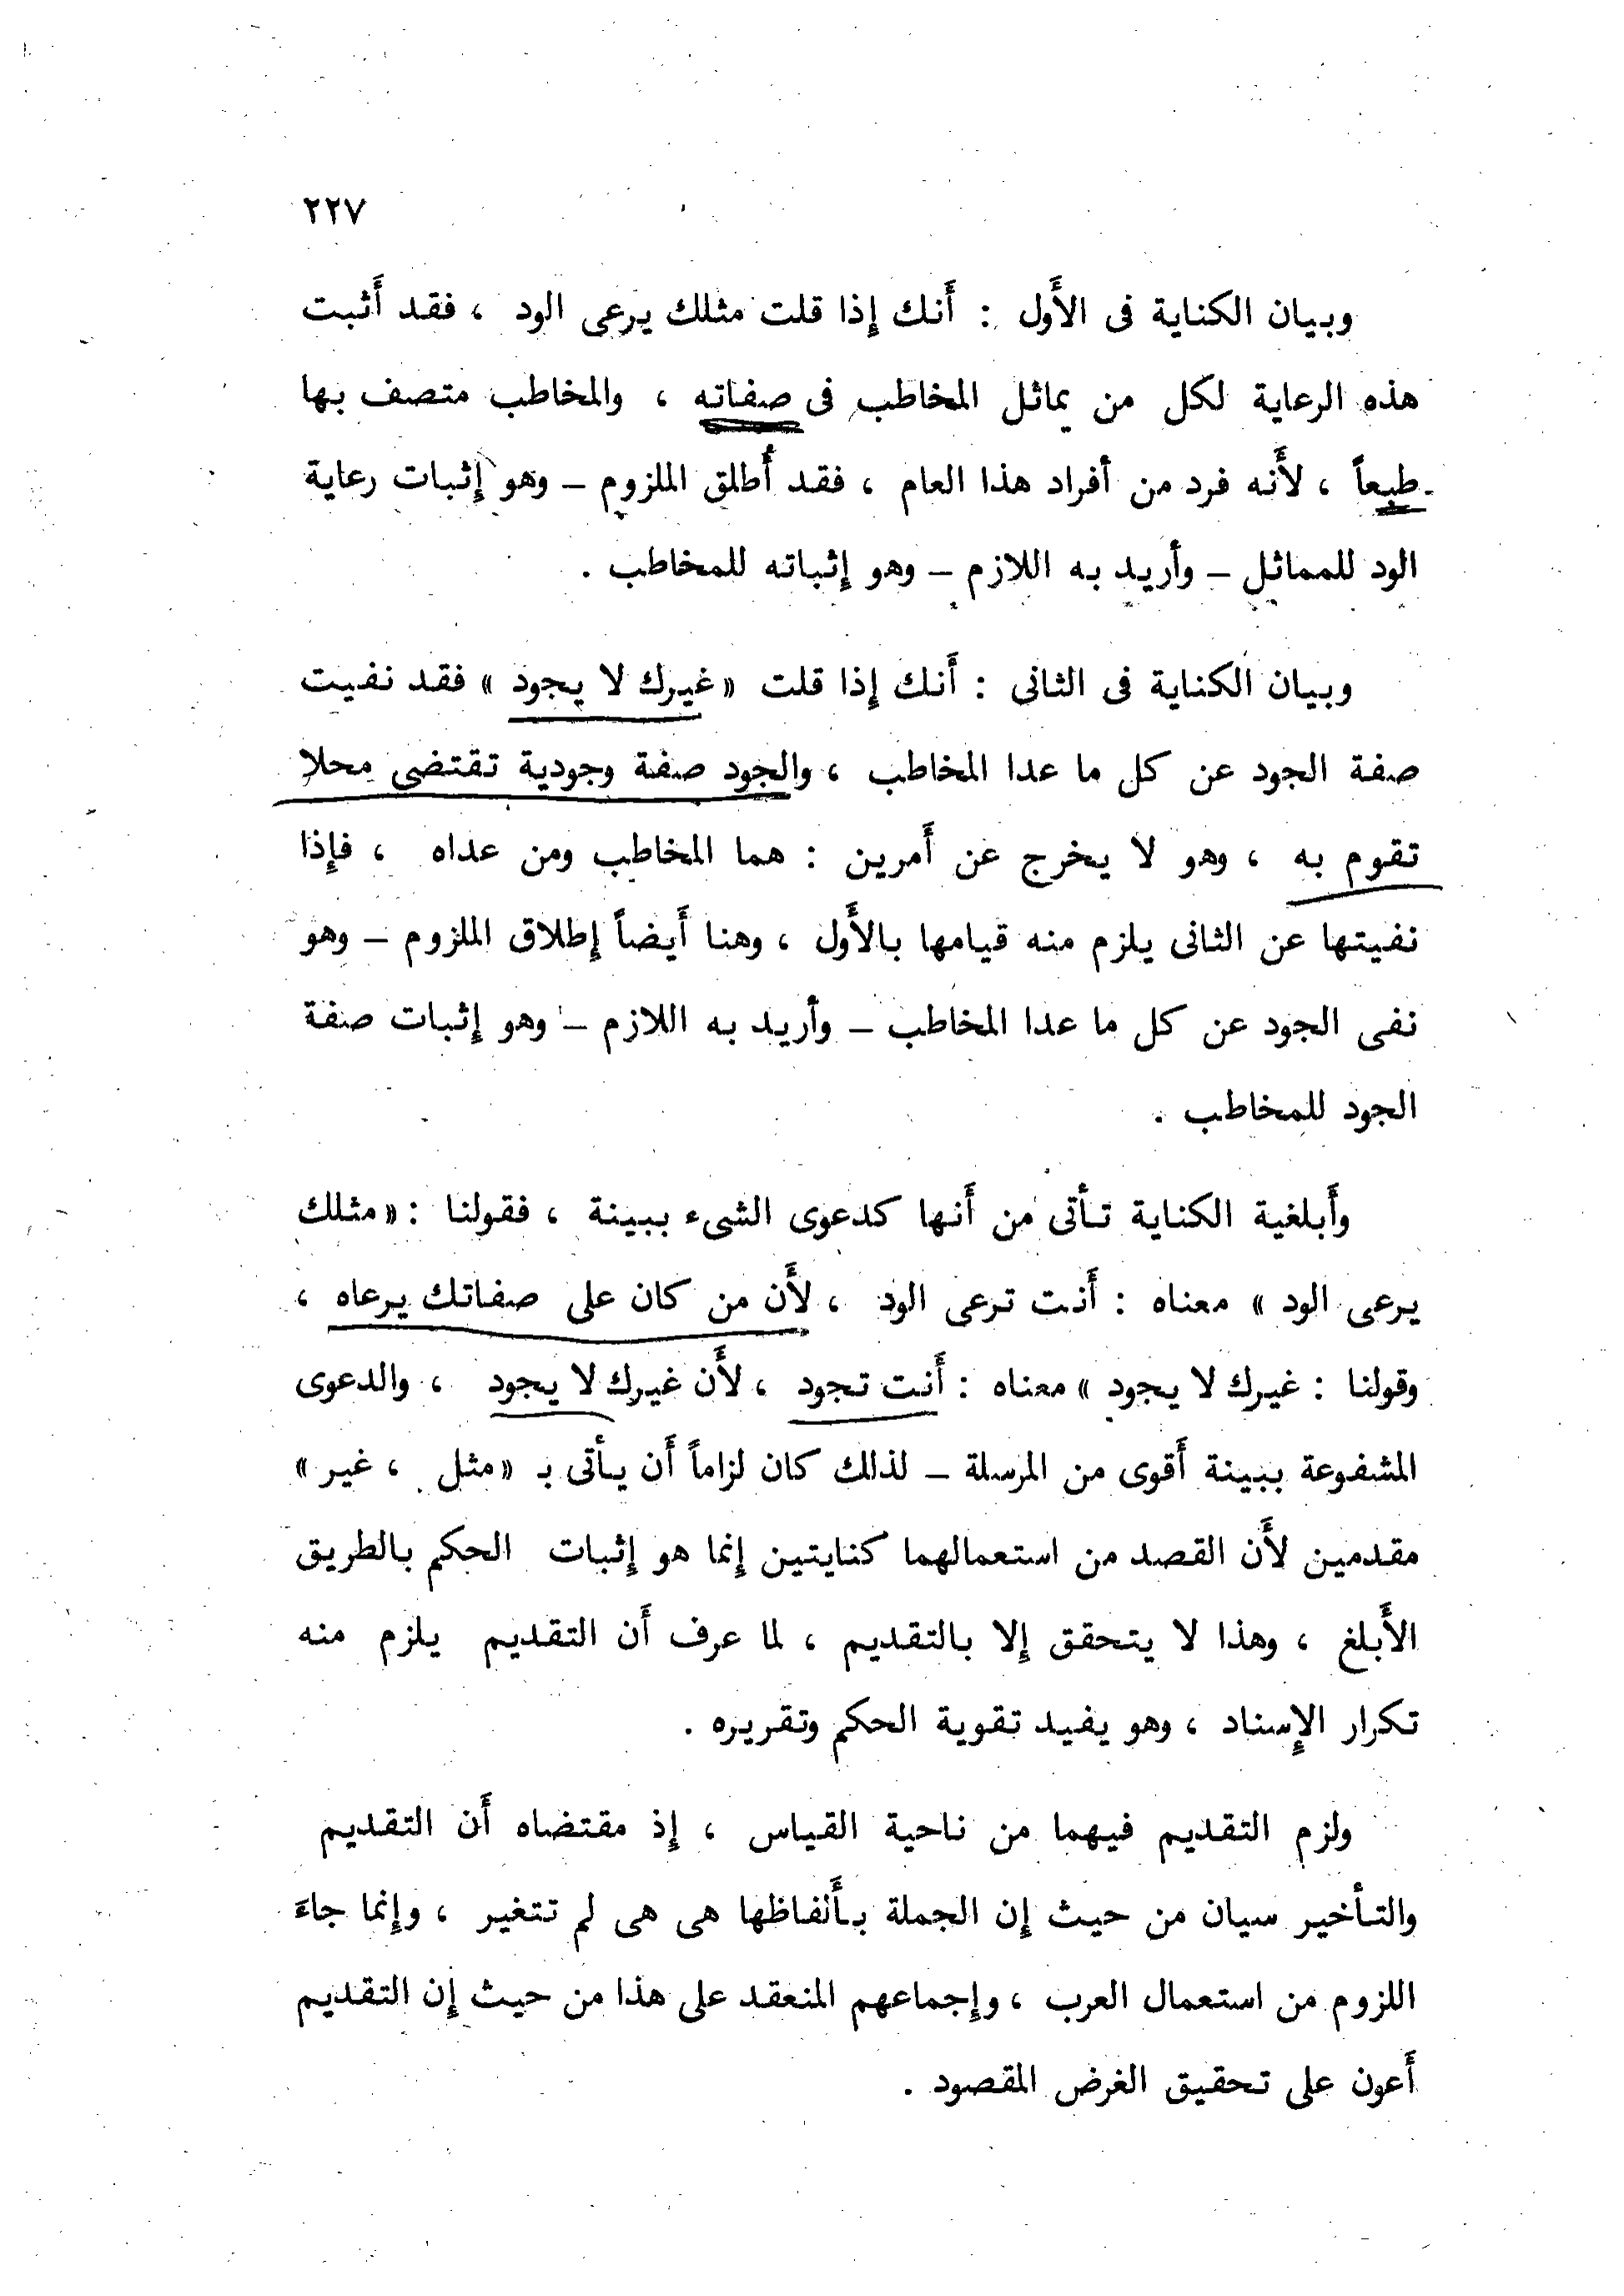 ٢٢٧
وبيان الكناية فى الأَول : أَنك إِذا قلت مثلك يرعى الود ، فقد أَثبت
هذه الرعاية لكل من يماثل المخاطب فى صفاته ، والمخاطب متصف بها
طبعاً ، لأَنه فرد من أفراد هذا العام ، فقد أُطلق الملزوم – وهو إِثبات رعاية
الود للمماثل – وأريد به اللازم – وهو إِثباته للمخاطب .
وبيان الكناية فى الثانى : أَنك إِذا قلت « غيرك لا يجود » فقد نفيت
صفة الجود عن كل ما عدا المخاطب ، والجود صفة وجودية تقتضى محلا
تقوم به ، وهو لا يخرج عن أَمرين : هما المخاطب ومن عداه ، فإِذا
نفيتها عن الثانى يلزم منه قيامها بالأَول ، وهنا أَيضاً إِطلاق الملزوم – وهو
نفى الجود عن كل ما عدا المخاطب – وأريد به اللازم – وهو إِثبات صفة
الجود للمخاطب .
وأَبلغية الكناية تأتى من أَنها كدعوى الشىء ببينة ، فقولنا : « مثلك
يرعى الود » معناه : أَنت ترعى الود ، لأَن من كان على صفاتك يرعاه ،
وقولنا : غيرك لا يجود » معناه : أَنت تجود ، لأَن غيرك لا يجود ، والدعوى
المشفوعة ببينة أَقوى من المرسلة – لذلك كان لزاماً أَن يأتى بـ « مثل ، غير »
مقدمين لأَن القصد من استعمالهما كنايتين إِنما هو إِثبات الحكم بالطريق
الأَبلغ ، وهذا لا يتحقق إِلا بالتقديم ، لما عرف أَن التقديم يلزم منه
تكرار الإِسناد ، وهو يفيد تقوية الحكم وتقريره .
ولزم التقديم فيهما من ناحية القياس ، إِذ مقتضاه أَن التقديم
والتأخير سيان من حيث إِن الجملة بأَلفاظها هى هى لم تتغير ، وإِنما جاءَ
اللزوم من استعمال العرب ، وإِجماعهم المنعقد على هذا من حيث إِن التقديم
أَعون على تحقيق الغرض المقصود .